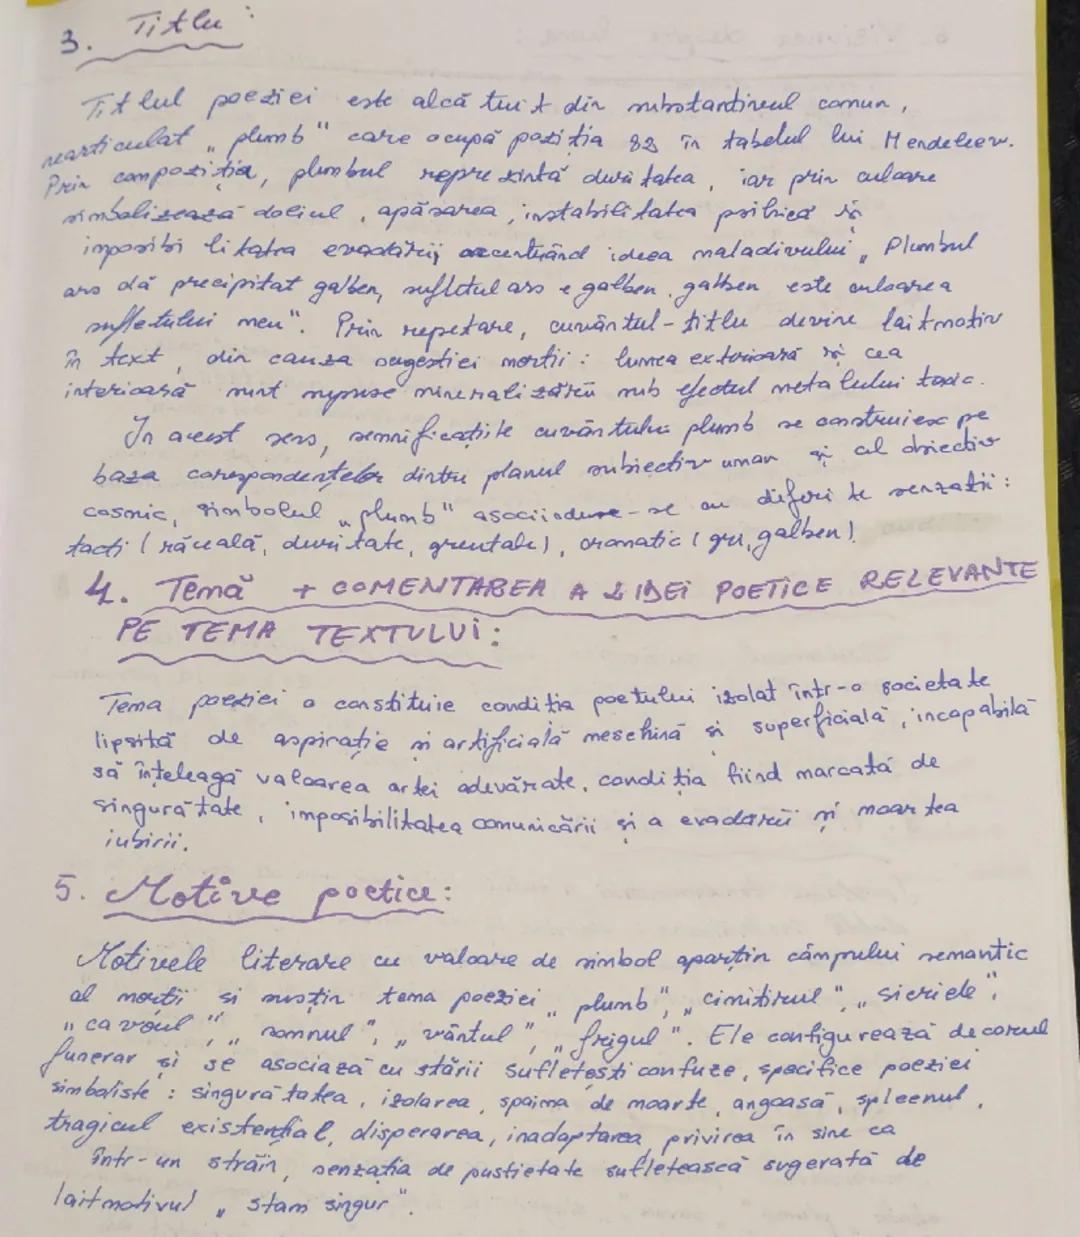 3. Titlu:
Titlul poeziei este alcătuit din substantivul comun,
nearticulat „plumb" care ocupă poziția 82 în tabelul lui Mendeleev.
Prin compoziția, plumbul reprezintă duritatea, iar prin culoare
simbolizează doliul, apăsarea, instabilitatea psihică și
imposibilitatea evadării, accentuând ideea maladivului „Plumbul
ars dă precipitat galben, sufletul ars e galben, galben este culoarea
sufletului meu". Prin repetare, cuvântul-titlu devine laitmotiv
în text, din cauza sugestiei morții: lumea exterioară și cea
interioasă sunt supuse mineralizării sub efectul metalului toxic.
In acest sens, semnificațiile cuvântului plumb se construiesc pe
baza corespondențelor dintre planul subiectiv uman și al obiectiv
cosmic, simbolul „plumb" asociindu-se cu diferite senzații:
tacti (răceală, duritate, greutate), cromatic (gri, galben).
4. Temă + COMENTAREA A 2 IDEI POETICE RELEVANTE
PE TEMA TEXTULUI:
Tema poeziei o constituie condiția poetului izolat într-o societate
lipsită de aspirație și artificială meschină și superficială, incapabilă
să înțeleagă valoarea artei adevărate, condiția fiind marcată de
singurătate, imposibilitatea comunicării și a evadării și moartea
iubirii.
5. Motive poetice:
Motivele literare cu valoare de simbol aparțin câmpului semantic
al morții și susțin tema poeziei „plumb", „cimitirul", „sicriele",
„cavoul", „somnul", „vântul", „frigul". Ele configurează decorul
funerar și se asociază cu stării sufletești confuze, specifice poeziei
simboliste: singurătatea, izolarea, spaima de moarte, angoasă, spleenul,
tragicul existențial, disperarea, inadaptarea, privirea în sine ca
într-un străin, senzația de pustietate sufletească sugerată de
laitmotivul „stam singur".